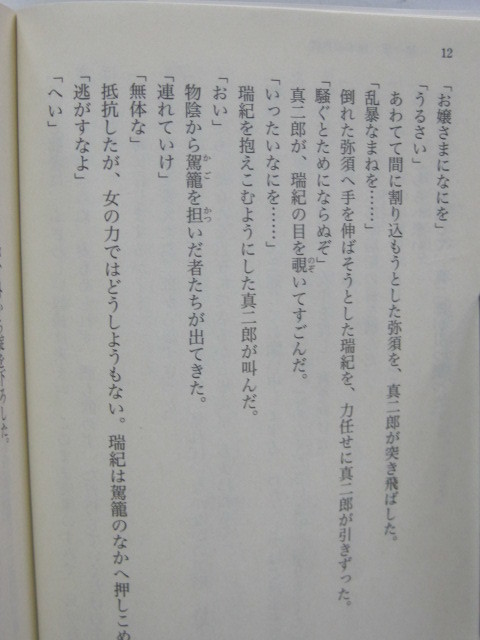 12
「お嬢さまになにを」
「うるさい」
あわてて間に割り込もうとした弥須を、真二郎が突き飛ばした。
「乱暴なまねを……」
倒れた弥須へ手を伸ばそうとした瑞紀を、力任せに真二郎が引きずった。
「騒ぐとためにならぬぞ」
真二郎が、瑞紀の目を覗いてすごんだ。
「いったいなにを……」
瑞紀を抱えこむようにした真二郎が叫んだ。
「おい」
物陰から駕籠を担いだ者たちが出てきた。
「連れていけ」
「無体な」
抵抗したが、女の力ではどうしようもない。瑞紀は駕籠のなかへ押しこめ
「逃がすなよ」
「へい」